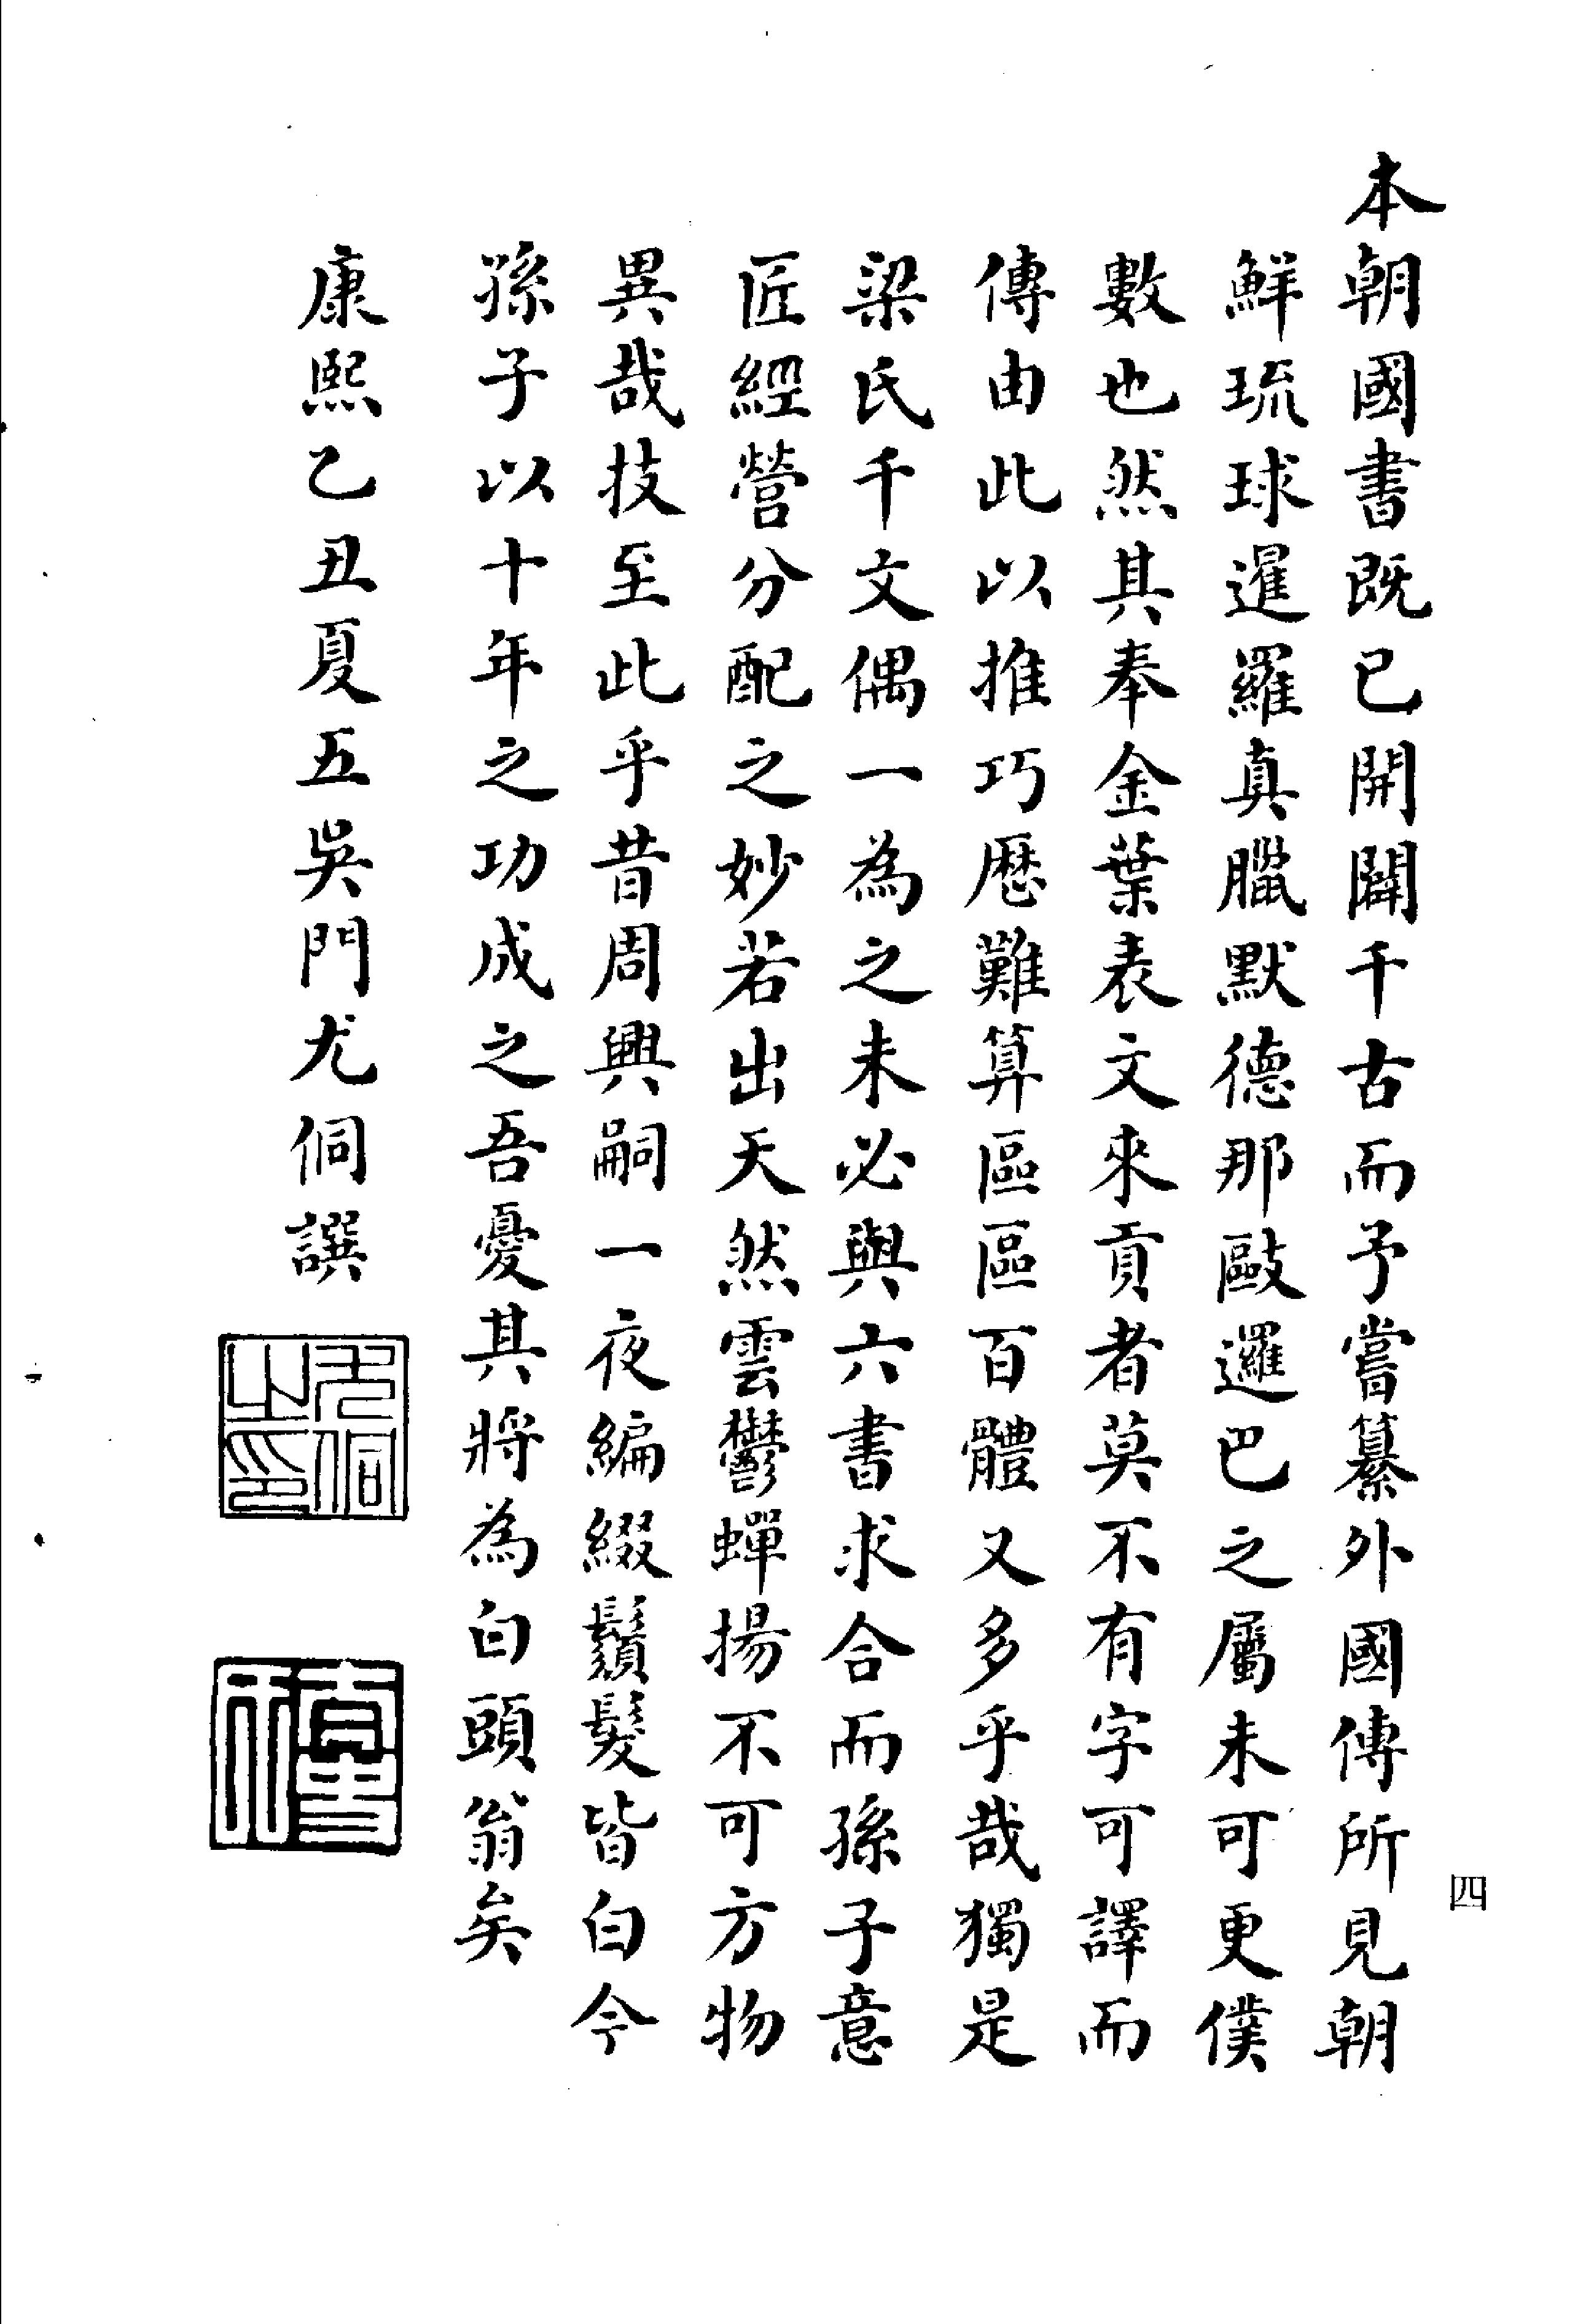 本朝國書既已開闢千古而予嘗纂外國傳所見朝
鮮琉球暹羅真臘默德那敺邏巴之屬未可更僕
數也然其奉金葉表文來貢者莫不有字可譯而
傳由此以推巧歷難算區區百體又多乎哉獨是
梁氏千文偶一為之未必與六書求合而孫子意
匠經營分配之妙若出天然雲鬱蟬揚不可方物
異哉技至此乎昔周興嗣一夜編綴鬚髮皆白今
孫子以十年之功成之吾憂其將為白頭翁矣
康熙乙丑夏五吳門尤侗譔
尤侗之印
四